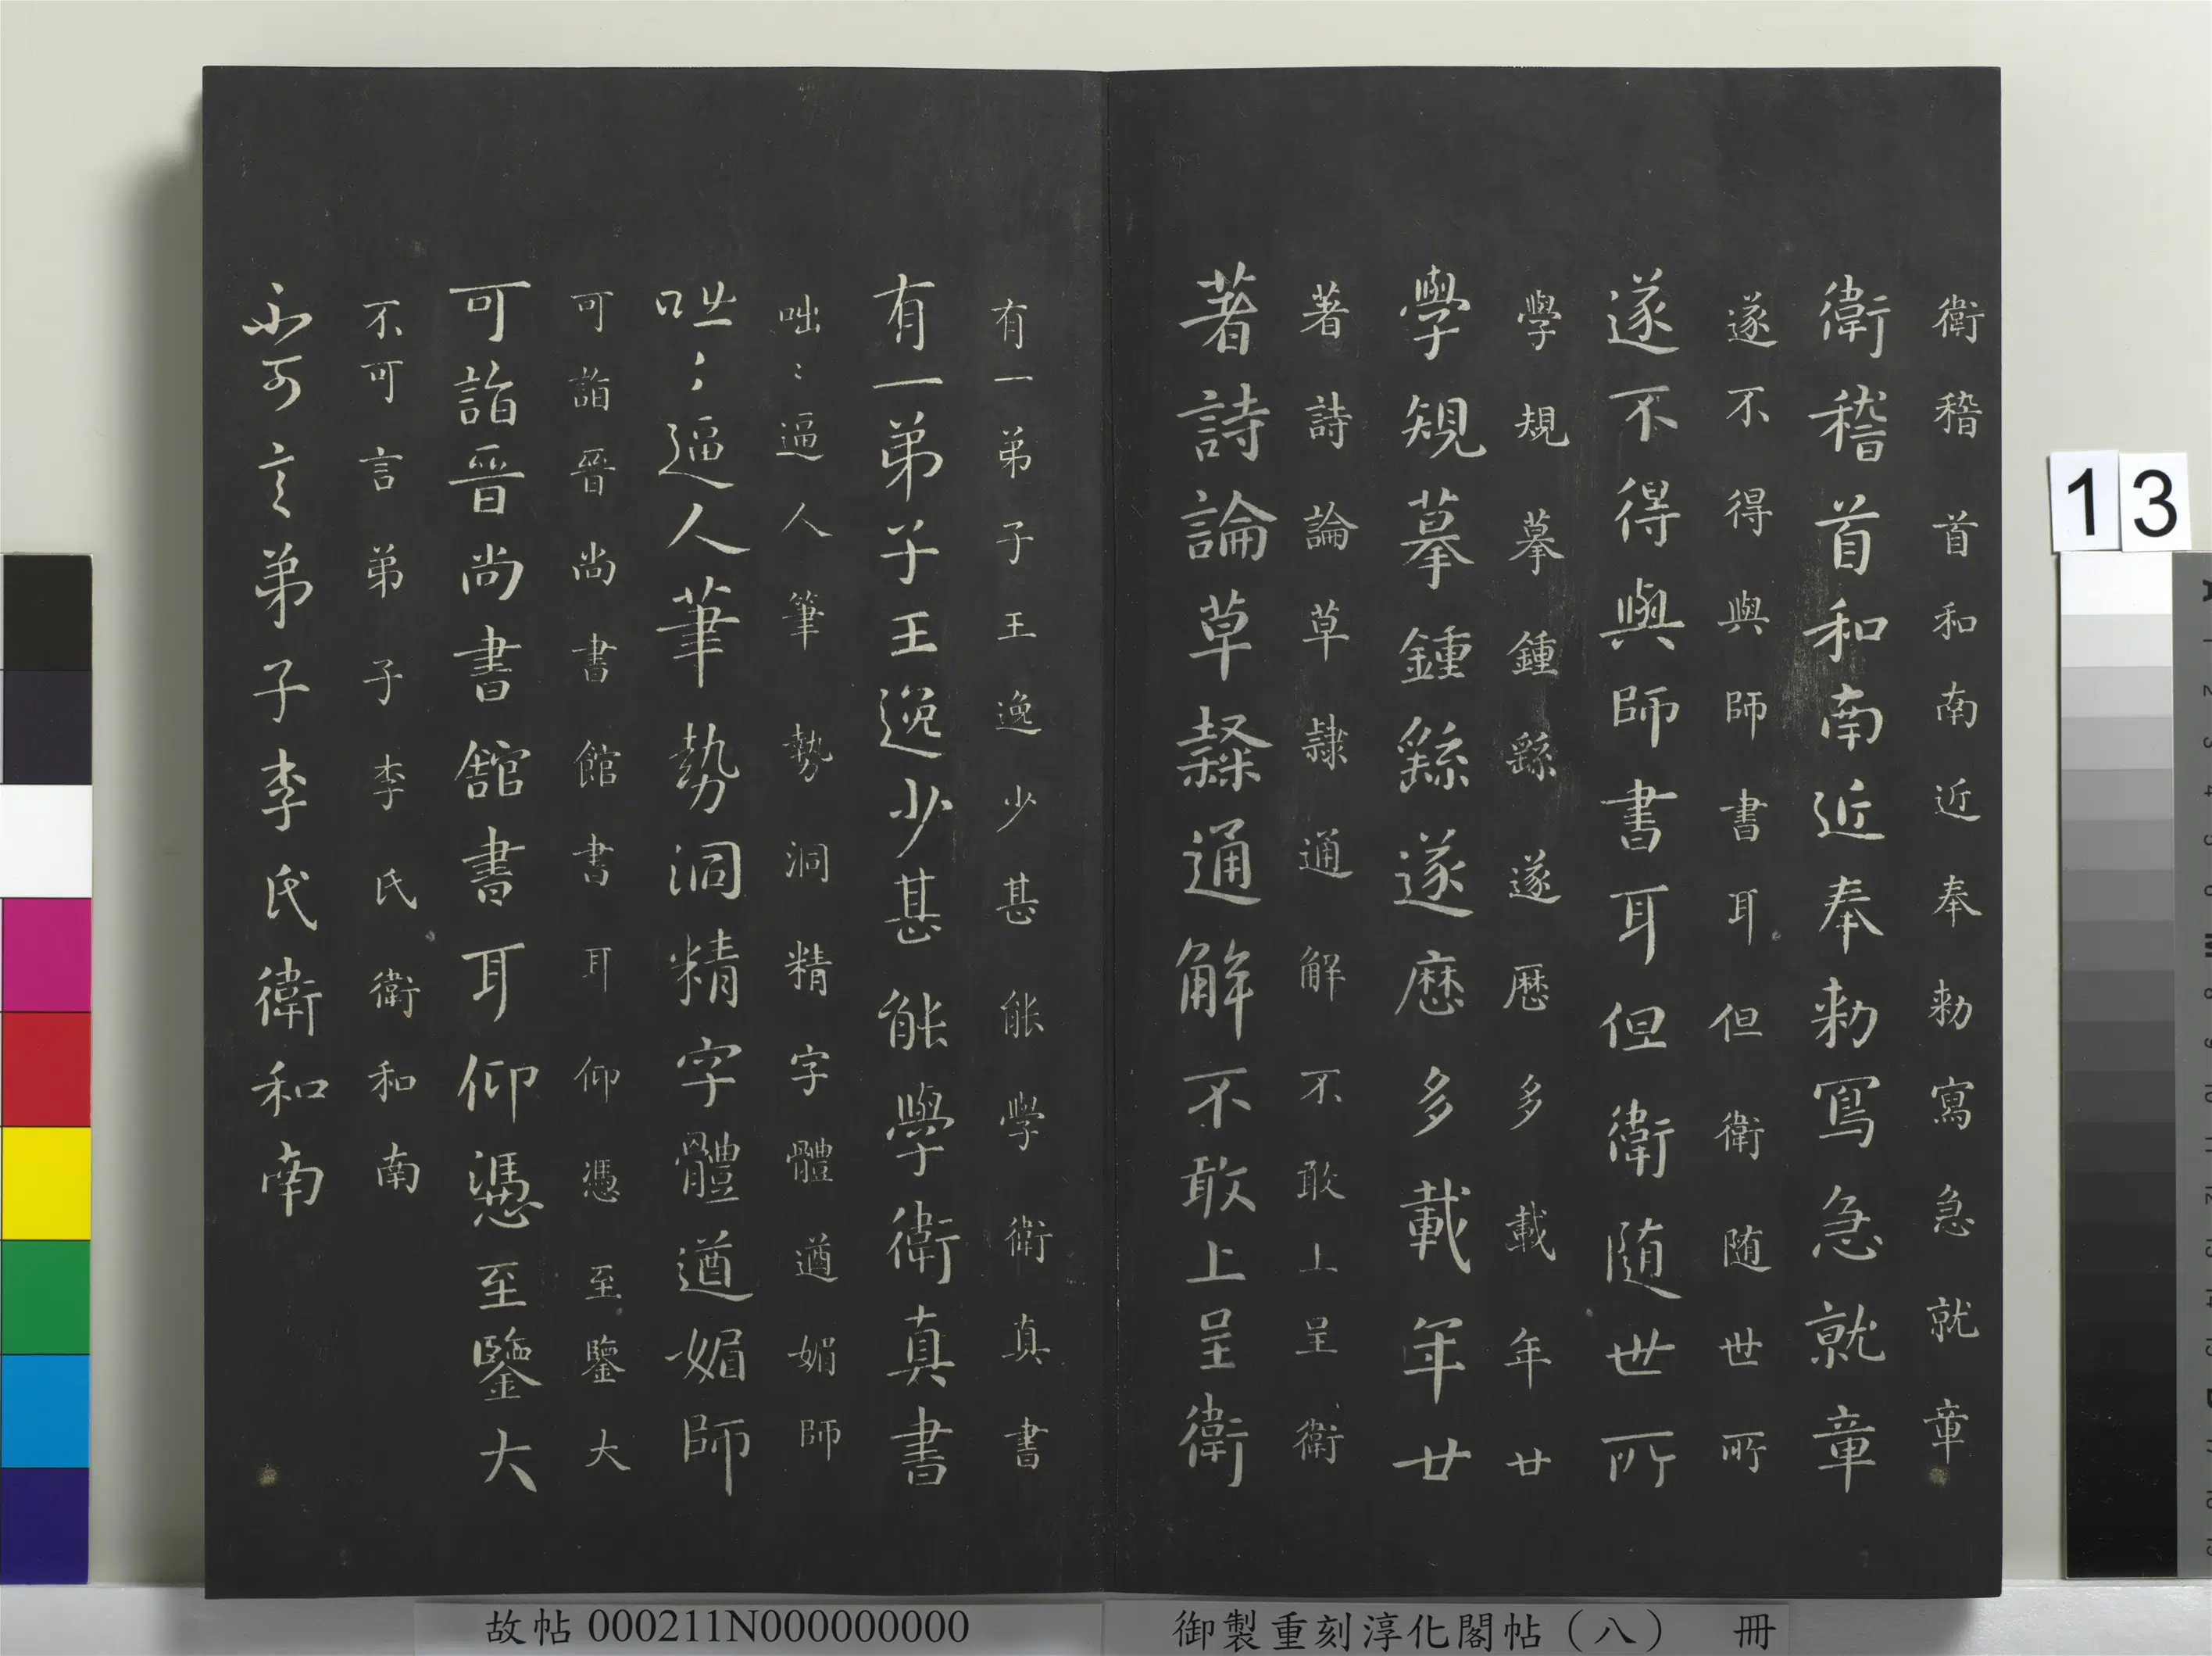 衛稽首和南近奉勅寫急就章
衛稽首和南近奉勅寫急就章
遂不得與師書耳但衛随世所
遂不得與師書耳但衛随世所
學規摹鍾繇遂歷多載年廿
學規摹鍾繇遂歷多載年廿
著詩論草隷通解不敢上呈衛
著詩論草隷通解不敢上呈衛
有一弟子王逸少甚能學衛真書
有一弟子王逸少甚能學衛真書
咄〻逼人筆勢洞精字體遒媚師
咄〻逼人筆勢洞精字體遒媚師
可詣晉尚書館書耳仰憑至鑒大
可詣晉尚書館書耳仰憑至鑒大
不可言弟子李氏衛和南
不可言弟子李氏衛和南
13
故帖 000211N000000000
御製重刻淳化閣帖（八） 冊